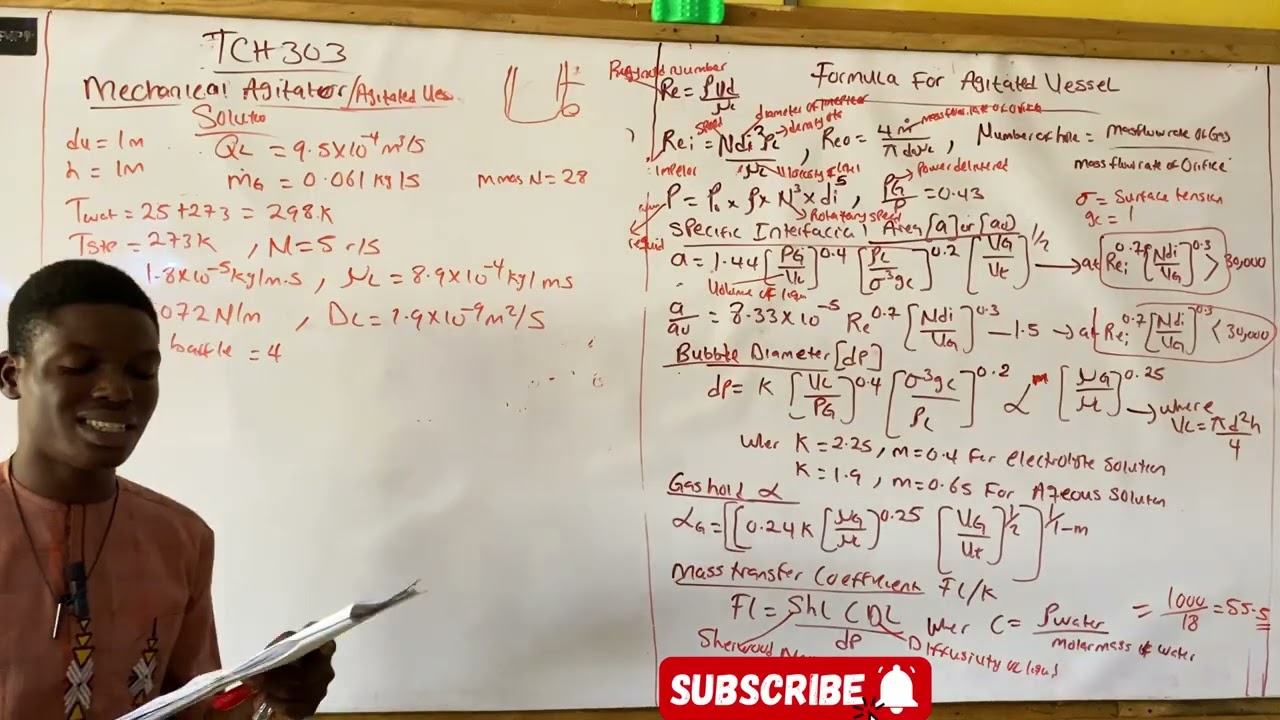 TCH 303
Mechanical Agitator/Agitated Ves.
Soluto
du = 1m
h = 1m
QL = 9.5x10^-4 m³/s
ṁG = 0.061 kg/s
mmas N = 28
Twat = 25+273 = 298.K
Tstp = 273K , N = 5 r/s
1.8x10^-5 kg/m.s , μL = 8.9x10^-4 kg/ms
072 N/m , DL = 1.9x10^-9 m²/s
baffle = 4
Formula For Agitated Vessel
Number
Re = ρud/μL
speed
diameter of
density
mass flow rate of Orifice
Rei = Ndi²ρL/μL , Reo = 4ṁ/πdoμL , Number of hole = mass flow rate of Gas/mass flow rate of Orifice
Power delivered
P = P0 x ρ x N³ x di⁵ , PG/P = 0.43
Rotatary speed
σ = Surface tension
gc = 1
Specific Interfacial Area [a] or [ao]
a = 1.44 [PG/VL]^0.4 [ρL/σ³gc]^0.2 [UG/Ut]^1/2 → at Rei^0.7 [Ndi/UG]^0.3 > 30,000
a/ao = 8.33x10^-5 Re^0.7 [Ndi/UG]^0.3 - 1.5 → at Rei^0.7 [Ndi/UG]^0.3 < 30,000
Bubble Diameter [dp]
dp = K [VL/PG]^0.4 [σ³gc/ρL]^0.2 α^m [μG/μ]^0.25 → where VL = πd²h/4
Wher K = 2.25, m = 0.4 for electrolyte solution
K = 1.9 , m = 0.65 For Aqeous Soluton
Gas hold α
αG = [[0.24K [μG/μ]^0.25 [UG/Ut]^1/2]^1/1-m
Mass transfer Coefficient FL/K
FL = ShL CDL/dp wher C = ρwater/molar mass of water = 1000/18 = 55.5
Diffusivity of liqui
SUBSCRIBE